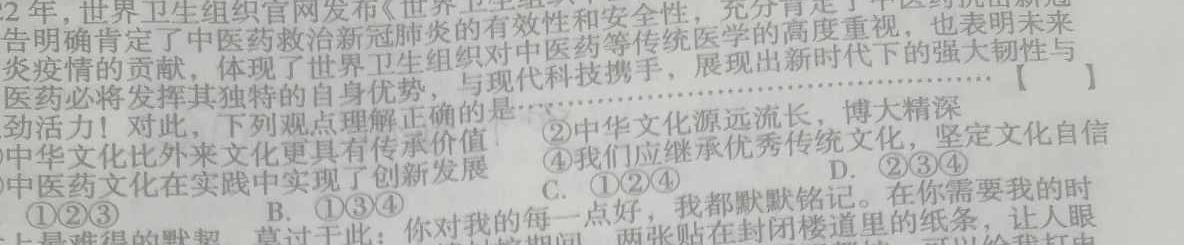 2年，世界卫生组织官网发布《世界卫生组
告明确肯定了中医药救治新冠肺炎的有效性和安全性，充分肯定了中医药抗击新冠
炎疫情的贡献，体现了世界卫生组织对中医药等传统医学的高度重视，也表明未来
医药必将发挥其独特的自身优势，与现代科技携手，展现出新时代下的强大韧性与
劲活力！对此，下列观点理解正确的是…………………………【 】
中华文化比外来文化更具有传承价值 ②中华文化源远流长，博大精深
中医药文化在实践中实现了创新发展 ④我们应继承优秀传统文化，坚定文化自信
①②③ B. ①③④ C. ①②④ D. ②③④
上最难得的默契，莫过于此：你对我的每一点好，我都默默铭记。在你需要我的时
期间，两张贴在封闭楼道里的纸条，让人眼